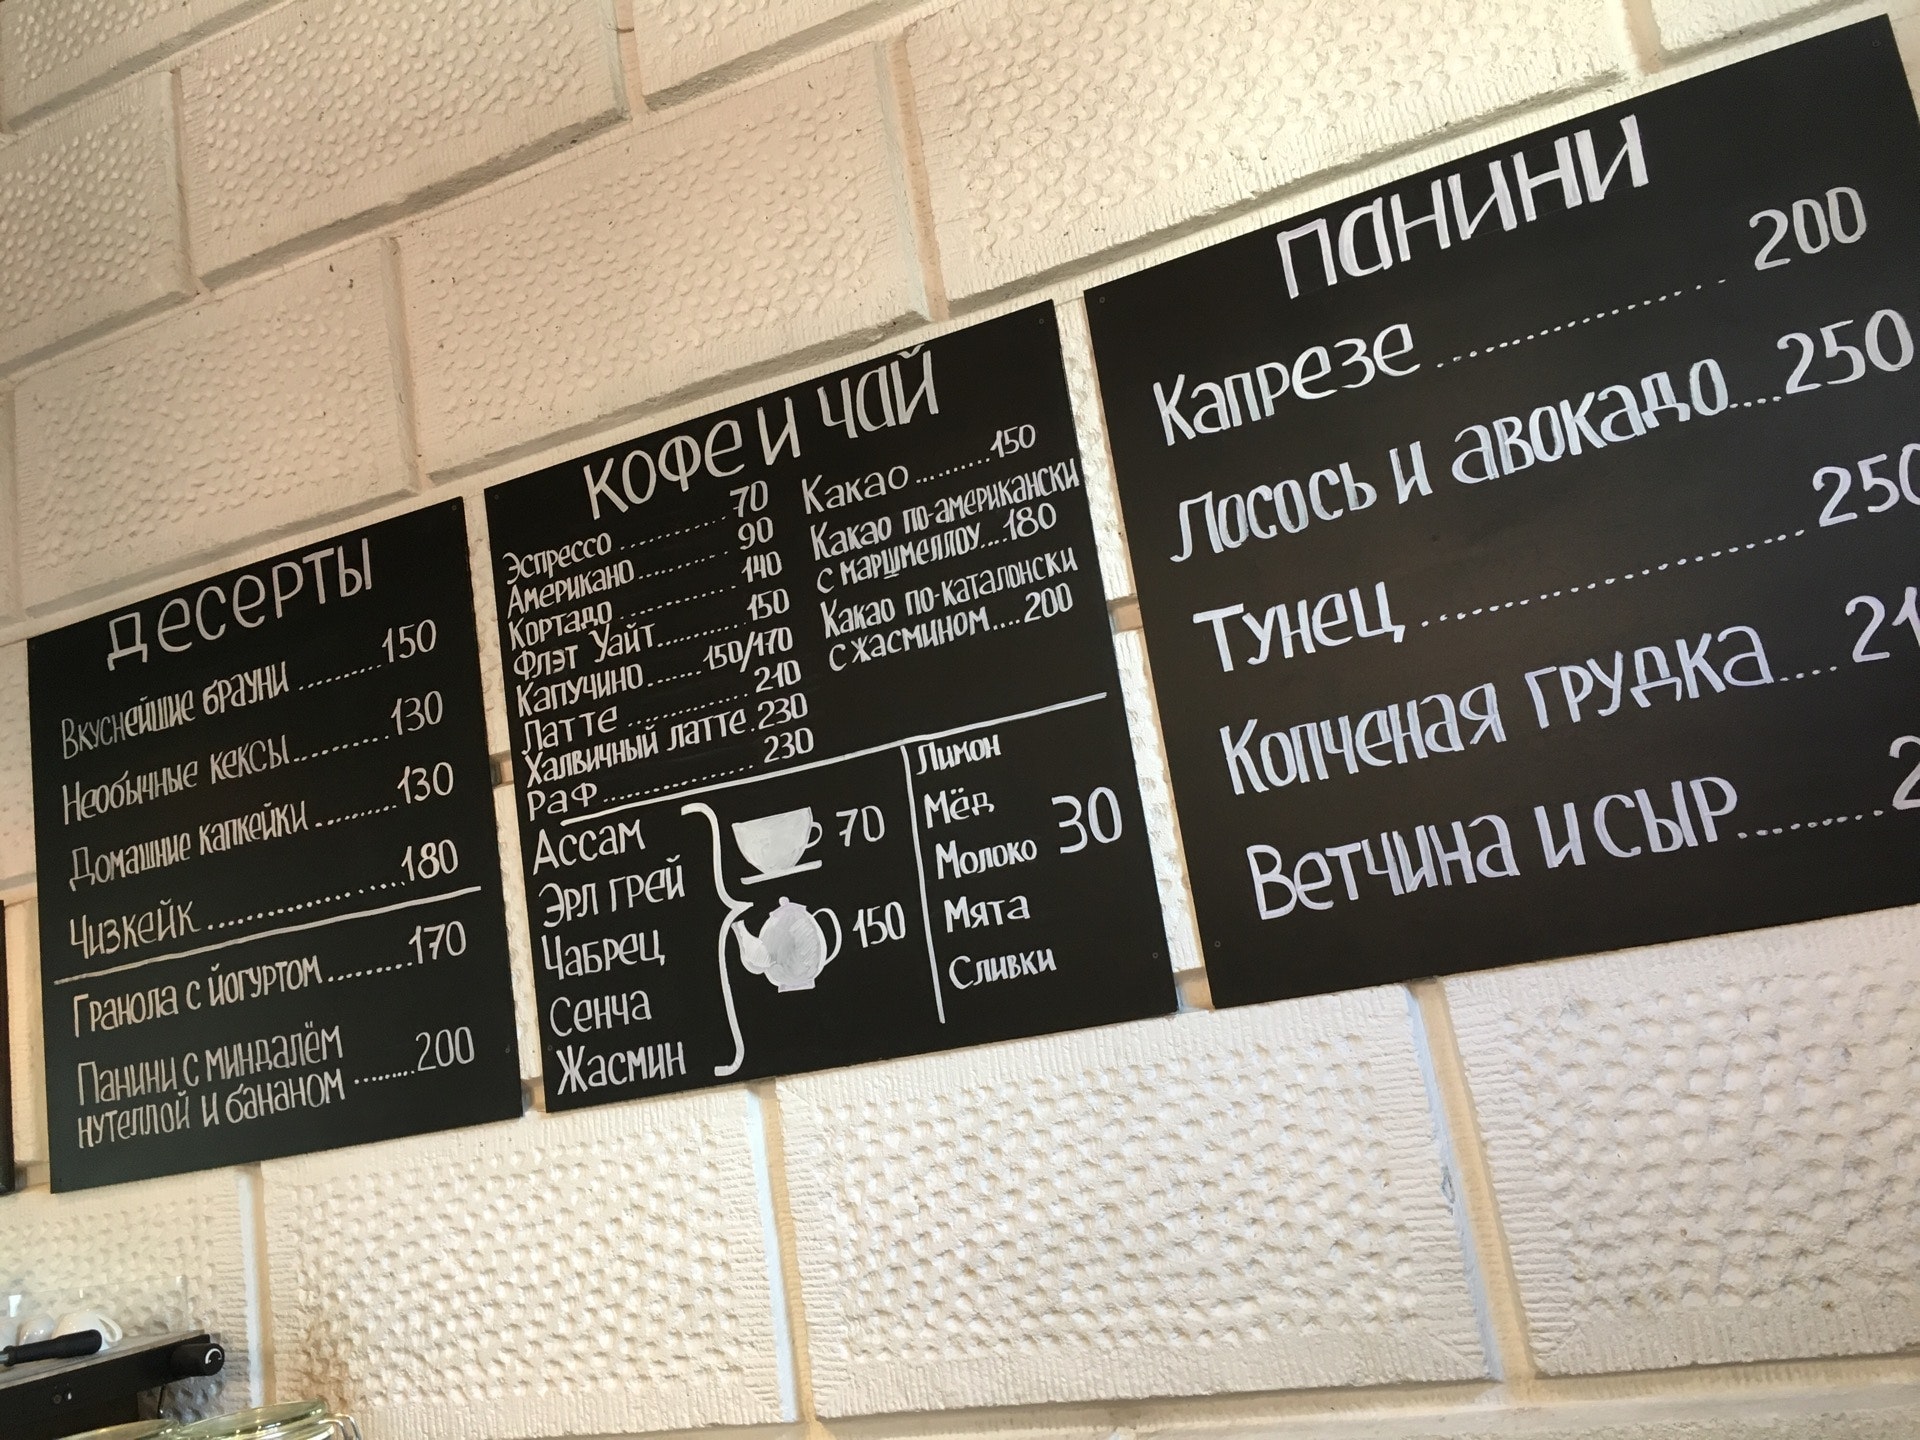 Десерты
Вкуснейшие брауни........150
Необычные кексы..........130
Домашние капкейки.........130
Чизкейк....................180
Гранола с йогуртом.........170
Панини с миндалём
нутеллой и бананом.......200
Кофе и чай
Эспрессо............70
Американо..........90
Кортадо............140
Флэт Уайт..........150
Капучино.......150/170
Латте.............210
Халвичный латте.230
Раф................230
Какао.........150
Какао по-американски
с маршмеллоу....180
Какао по-каталонски
с жасмином....200
Ассам
Эрл грей
Чабрец
Сенча
Жасмин
70
150
Лимон
Мёд
Молоко 30
Мята
Сливки
Панини
Капрезе....................200
Лосось и авокадо....250
Тунец..........................250
Копченая грудка....
Ветчина и сыр..........